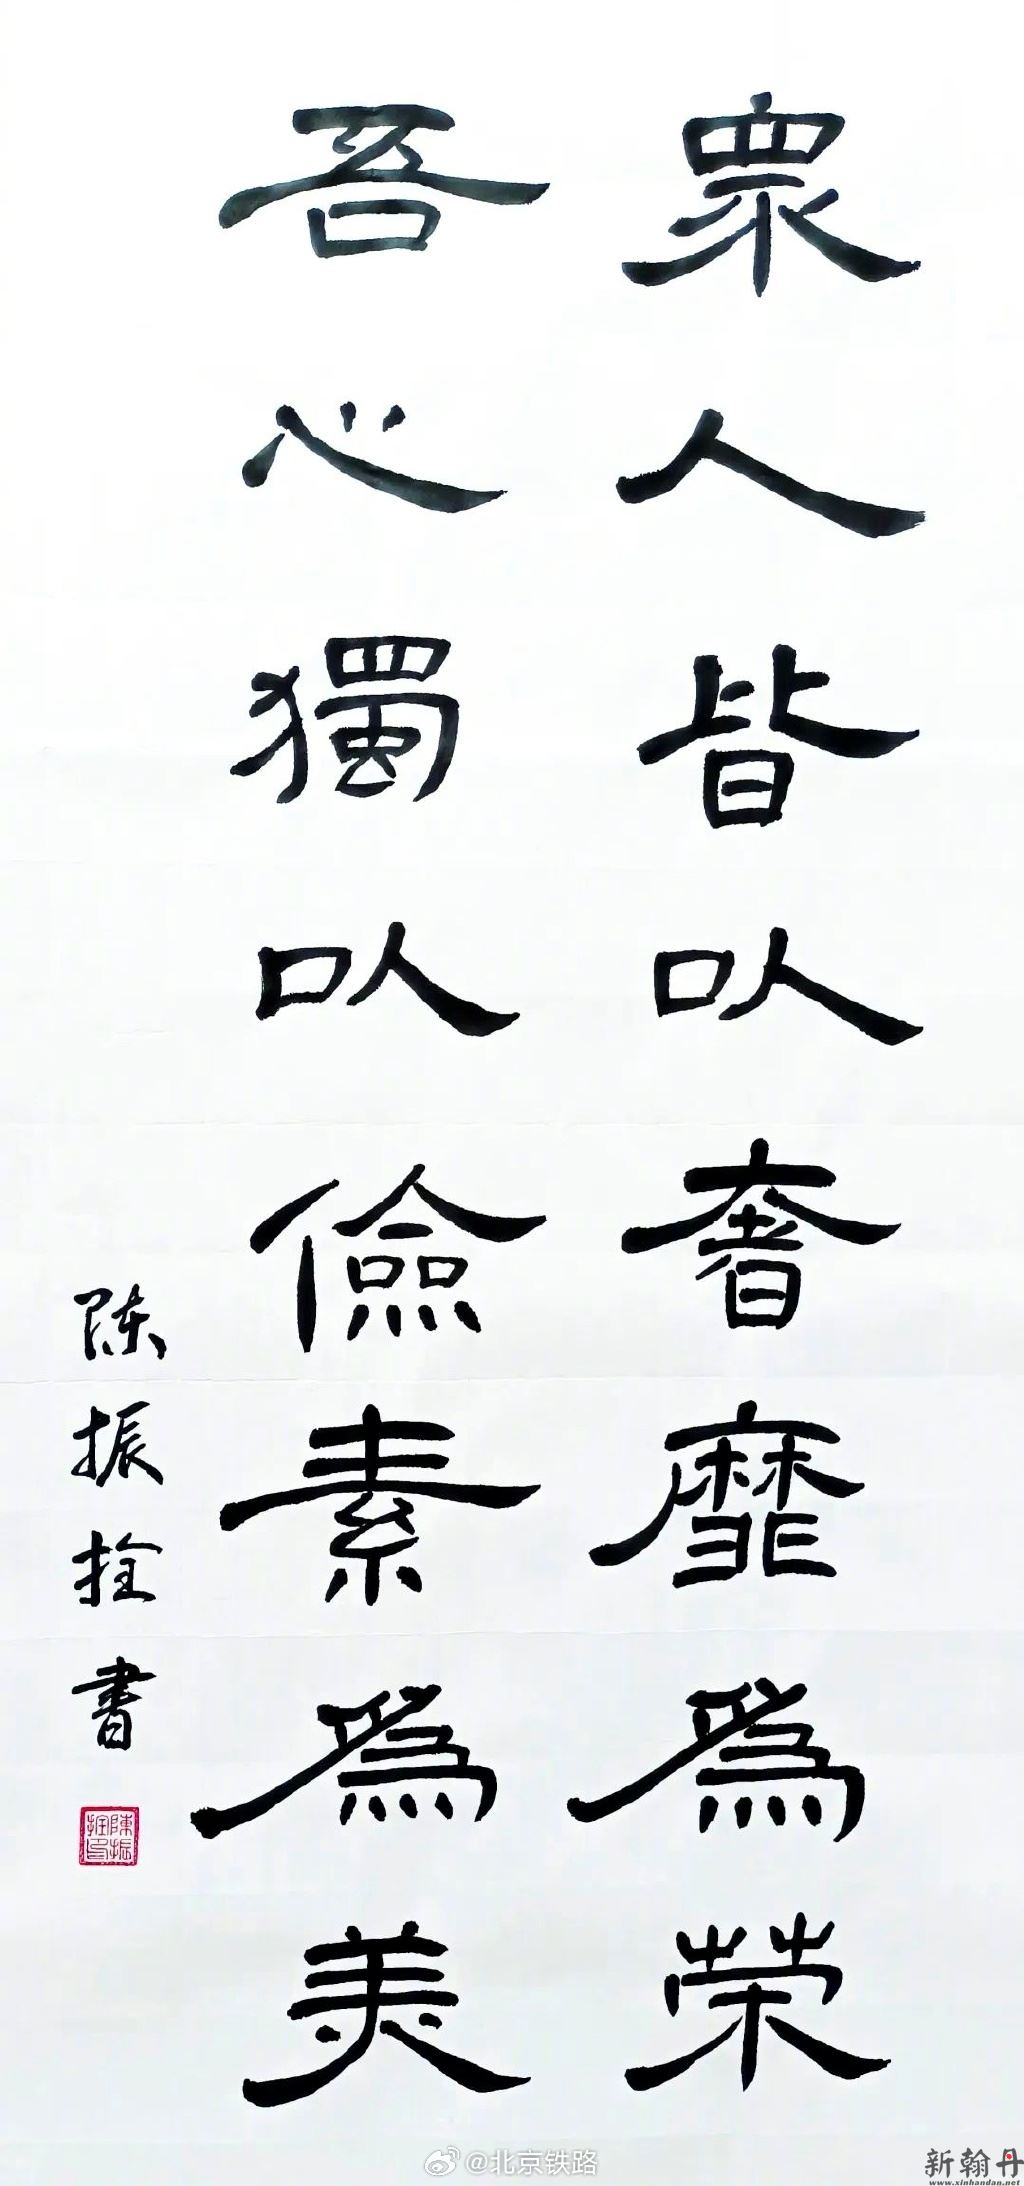 眾人皆以奢靡為榮
吾心獨以儉素為美
陈振拴書
陳振拴印
@北京铁路
新翰丹
www.xinhandan.net